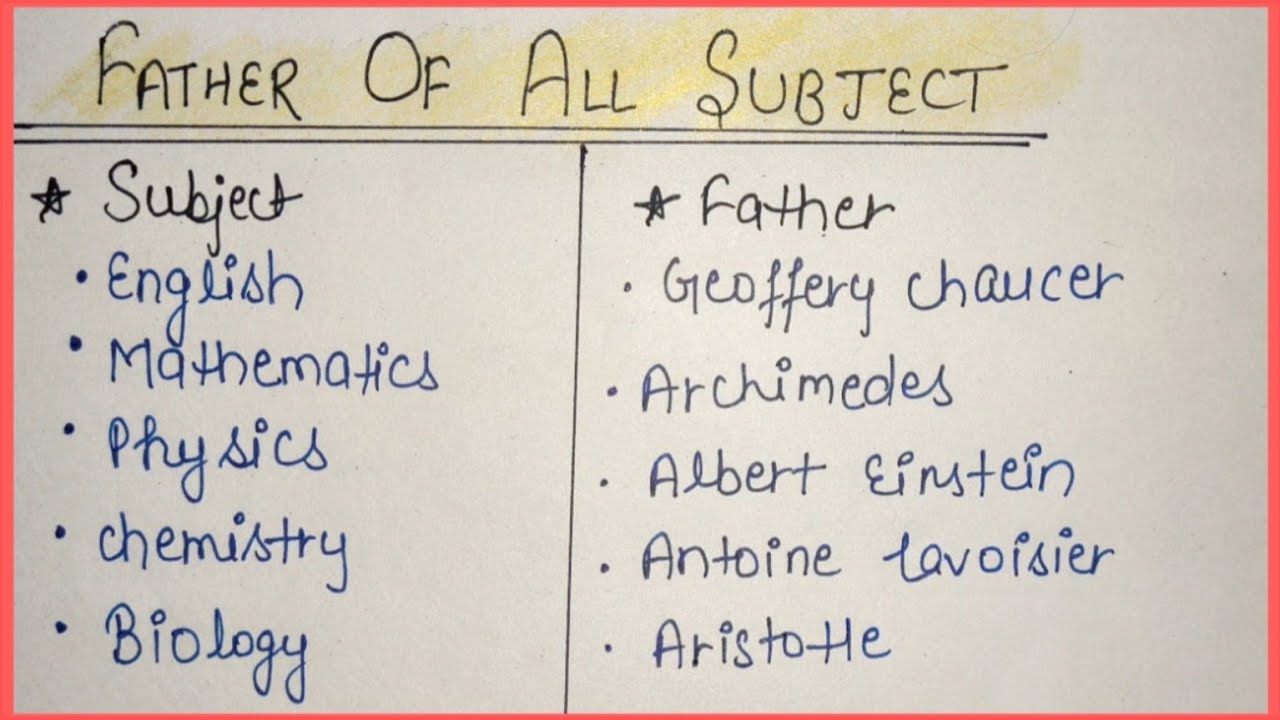 FATHER OF ALL SUBJECT
★ Subject ★ Father
• English • Geoffery chaucer
• Mathematics • Archimedes
• Physics • Albert Einstein
• chemistry • Antoine lavoisier
• Biology • Aristotle